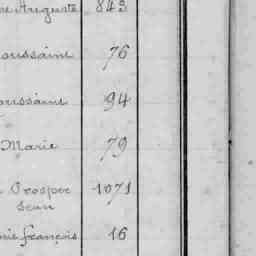 Auguste 843
oussaint 76
oussaint 94
Marie 79
Prosper 1071
Jean
François 16